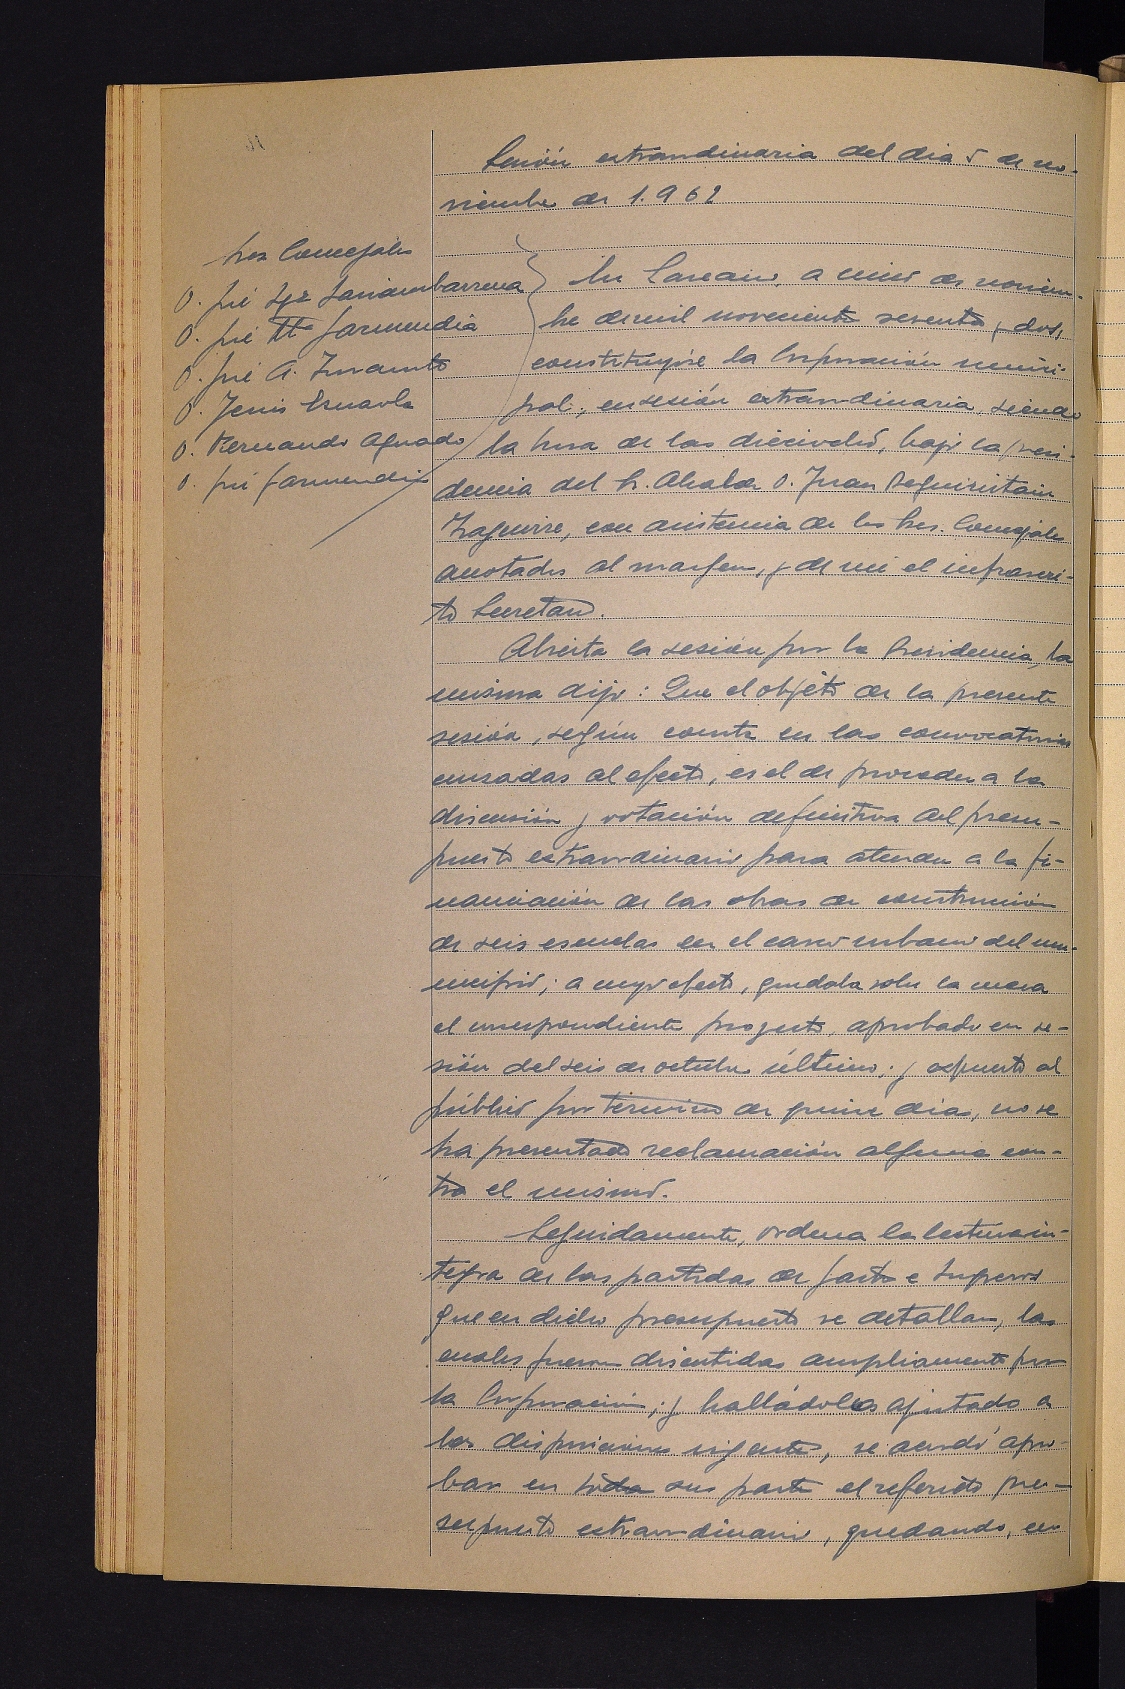 Sesión extraordinaria del dia 5 de no-
viembre de 1.962
Sres Concejales
D. José Igº Sarasambarrena
D. José Mª Garmendia
D. José A.
D. Jesus Esnaola
D. Fernando Aguado
D. José Garmendia
En Lazcano, a cinco de noviem-
bre de mil novecientos sesenta y dos,
constituyóse la Corporación munici-
pal, en sesión extraordinaria, siendo
la hora de las dieciocho, bajo la presi-
dencia del Sr. Alcalde D. Juan Aeguiristain
Izaguirre, con asistencia de los Sres. Concejales
anotados al margen, y de mi el infrascri-
to Secretario.
Abierta la sesión por la Presidencia, la
misma dijo: Que el objeto de la presente
sesión, según consta en las convocatorias
cursadas al efecto, es el de proceder a la
discusión y votación definitiva del presu-
puesto extraordinario para atender a la fi-
nanciación de las obras de construcción
de seis escuelas en el casco urbano del mu-
nicipio; a cuyo efecto, quedaba sobre la mesa
el correspondiente proyecto, aprobado en se-
sión del seis de octubre último; y expuesto al
público por término de quince dias, no se
ha presentado reclamación alguna con-
tra el mismo.
Seguidamente, ordena la lectura ín-
tegra de las partidas de gastos e Ingresos
que en dicho presupuesto se detallan, las
cuales fueron discutidas ampliamente por
la Corporación; y halládolas ajustado a
las disposiciones vigentes, se acordó apro-
bar en todas sus partes el referido pre-
supuesto extraordinario, quedando, en